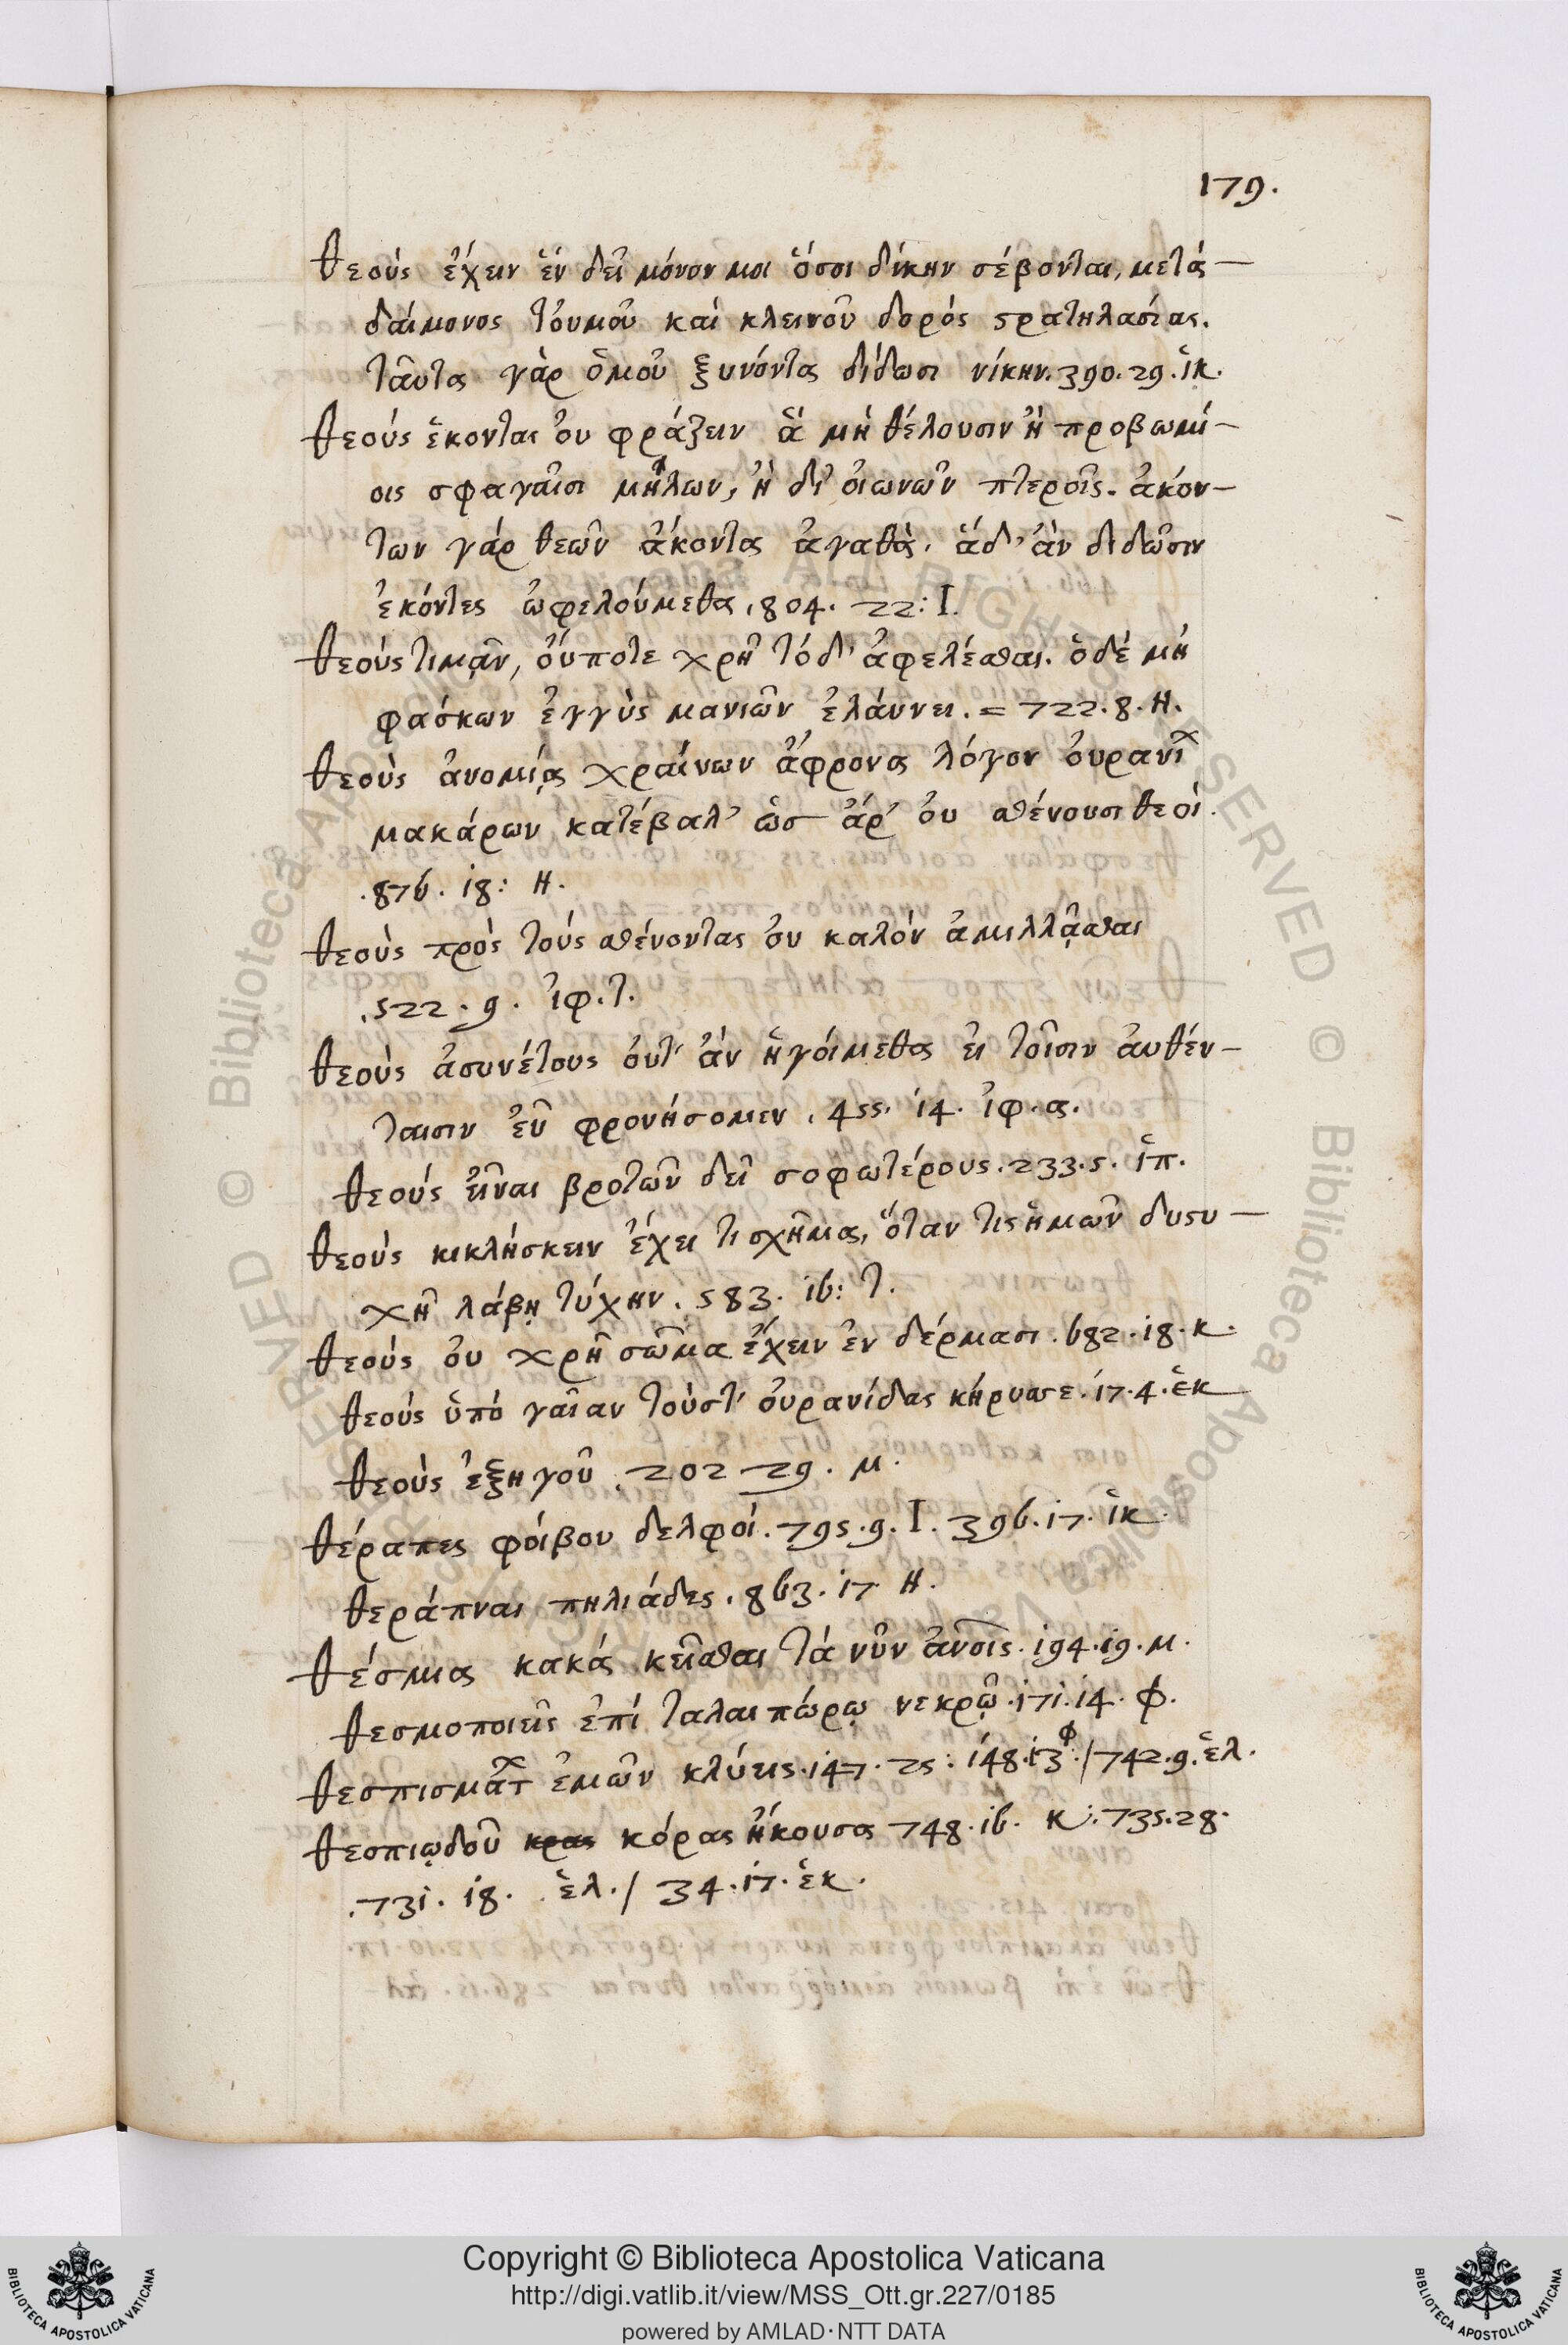 179.
θεούς ἔχειν ἐν δεῖ μόνον μοι ὅσοι δίκην σέβονται, μετά—
δαίμονος τοὐμοῦ καὶ κλεινοῦ δορός στρατηλασίας.
ταῦτα γὰρ ὁμοῦ ξυνόντα δίδωσι νίκην. 390. 29. ἱκ.
θεούς ἑκοντας οὐ φράζειν ἅ μή θέλουσιν ἤ προβωμί—
οις σφαγαῖσι μήλων, ἤ δι' οἰωνῶν πτεροῖς. ἀκόν—
των γάρ θεῶν ἄκοντα ἀγαθὰ. ἅδ' ἀν διδῶσιν
ἑκόντες ὠφελούμεθα. 804. 22: Ι.
θεούς τιμᾷν, οὔποτε χρῆ τόδ' ἀφελέσθαι. ὁδέ μή
φάσκων ἐγγὺς μανιῶν ἐλάυνει. = 722. 8. Η.
θεοὺς ἀνομίᾳς χραίνων ἄφρονα λόγον ὀυρανῖ
μακάρων κατέβαλ' ὡσ ἄρ' ὀυ σθένουσι θεοί.
.876. i8: Η.
θεοὺς πρὸς τούς σθένοντας ὀυ καλόν ἁμιλλᾷσθαι
.522. 9. ἰφ. τ.
θεοὺς ἀσυνέτους ὀυτ' ἀν ἡγοίμεθα ἐι τοῖσιν ἀυθέν—
ταισιν ἐῦ φρονήσομεν. 455. i4. ἰφ. α.
θεούς εἶναι βροτῶν δεῖ σοφωτέρους. 233. 5. ἱπ.
θεοὺς κικλήσκειν ἔχει τι σχῆμα, ὅταν τις ἡμῶν δυςυ—
χῆ λάβῃ τύχην. 583. i6: τ.
θεούς ὀυ χρῆ σῶμα ἔχειν ἐν δέρμασι. 682. i8. κ.
θεούς ὑπό γαῖαν τοὺστ' ὀυρανίδας κήρυσσε. i7. 4. ἑκ
θεοὺς ἐξηγοῦ. 202 29. μ.
θέραπες φοίβου δελφοί. 795. 9. Ι. 396. i7. ἱκ.
θεράπναι πηλιάδες. 863. i7 Η.
θέσμια κακά κεῖσθαι τά νῦν ἀνοῖς. i94. i9. μ.
θεσμοποιεῖς ἐπί ταλαιπώρῳ νεκρῷ. i7i. i4. φ.
θεσπισμᾶτ ἐμῶν κλύεις. i47. 25: i48. i3 φ. / 742. 9. ἑλ.
θεσπιῳδοῦ κρας κόρας ἤκουσα 748. i6. κ: 735. 28.
.73i. i8. ἑλ. / 34. i7. ἑκ.
Copyright © Biblioteca Apostolica Vaticana
http://digi.vatlib.it/view/MSS_Ott.gr.227/0185
powered by AMLAD·NTT DATA